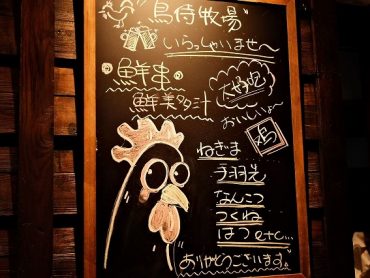 "鳥侍牧場"
いらっしゃいませ〜
鮮串
鮮美多汁
大好吃
おいしいよ〜
鳥
ねぎま
手羽先
なんこつ
つくね
はつ etc...
"ありがとうございます。"